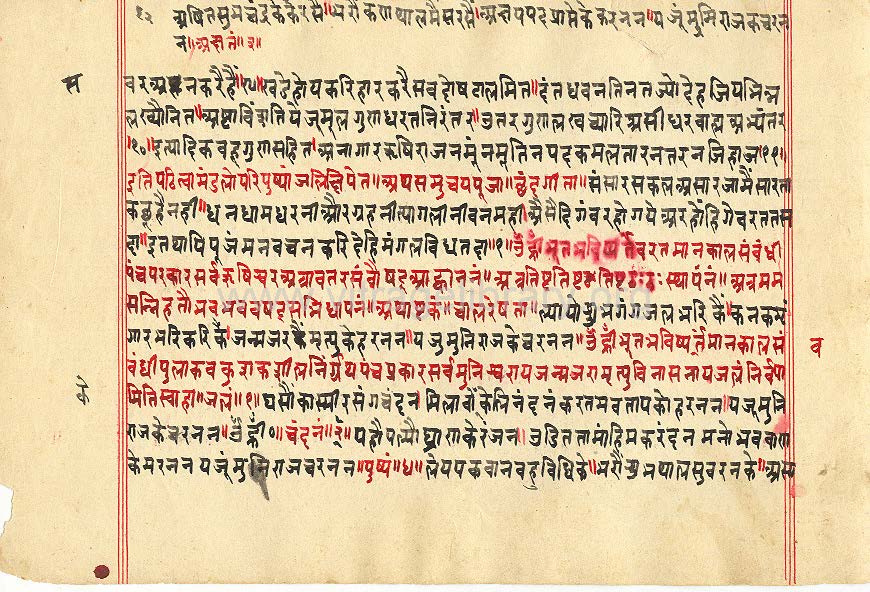 १२ अषितसुभ्रचंद्रकेकेरसै॥भरौंकणथालमैसरसै॥अन्नयपदप्राप्तेकेकरनन॥यजूंमुनिराजकेचरन
न॥अक्षतं॥३॥
स
वरअस्नकरैहैं॥९॥खडेहोयकरिहारकरैसबदोषटालमित॥दंतधवनतिनतज्योदेहजियभिन्न
लख्यौनित॥अष्टाविंशतियेजूमूलगुणधरतनिरंतर॥उतरगुणलखच्यारिअसीधरबाह्यअभ्यंतर
॥१०॥इत्यादिकबहुगुणसहित॥अनागारऋषिराजनमूंनमूंतिनपदकमलतारनतरनजिहाज॥११॥
इतिपठित्वामंडलोपरिपुष्पांजलिंक्षिपेत॥अथसमुच्चयपूजा॥छंदगीता॥संसारसकलअसारजामैंसारता
कछूहैनही॥धनधामधरनीऔरग्रहनीत्यागलीनीवनमही॥ऐसेदिगंवरहोगयेअरहोंहिगेवरततस
दा॥इतथापिपूजूंमनवचनकरिदेहिमंगलविधतदा॥१॥ॐह्रींभूतभविष्यतवरतमानकालसंबंधी
पंचपरकारसर्वऋषिश्वरअत्रावतरसंवौषट्आह्वाननं॥अत्रतिष्टतिष्टठःठःस्थापनं॥अत्रमम
सन्निहतौभवभववषट्सन्निधापनं॥अथाष्टकं॥चालरेषता॥ल्यायोशुभगंगजलभरिकै॥कनकभृं
गारभरिकरिकै॥जन्मजरकेमृत्युकेहरनन॥यजुमुनिराजकेचरनन॥ॐह्रींभूतभविष्यर्तमानकालसं
व
बंधीपुलाकवकुशकुशीलनिर्ग्रंथपंचप्रकारसर्वमुनिश्वरायजन्मजरामृत्युविनासनायजलंनिर्वपा
के
मितिस्वाहा॥जलं॥१॥घसौंकास्मीरसंगचंदन॥मिलावौंकेलिनंदनंकरतभवतापकोहरनन॥यजूमुनि
राजकेचरनन॥ॐह्रीं०॥चंदनं॥२॥पहौपल्यौघ्राणकेरंजन॥उडिततामांहिमकरंदनमनोभवबाण
केमरननयजूंमुनिराजचरनन॥पुष्पं॥४॥लेयपकवानबहुविधिके॥भरौंशुभथालसुवरनके॥अस